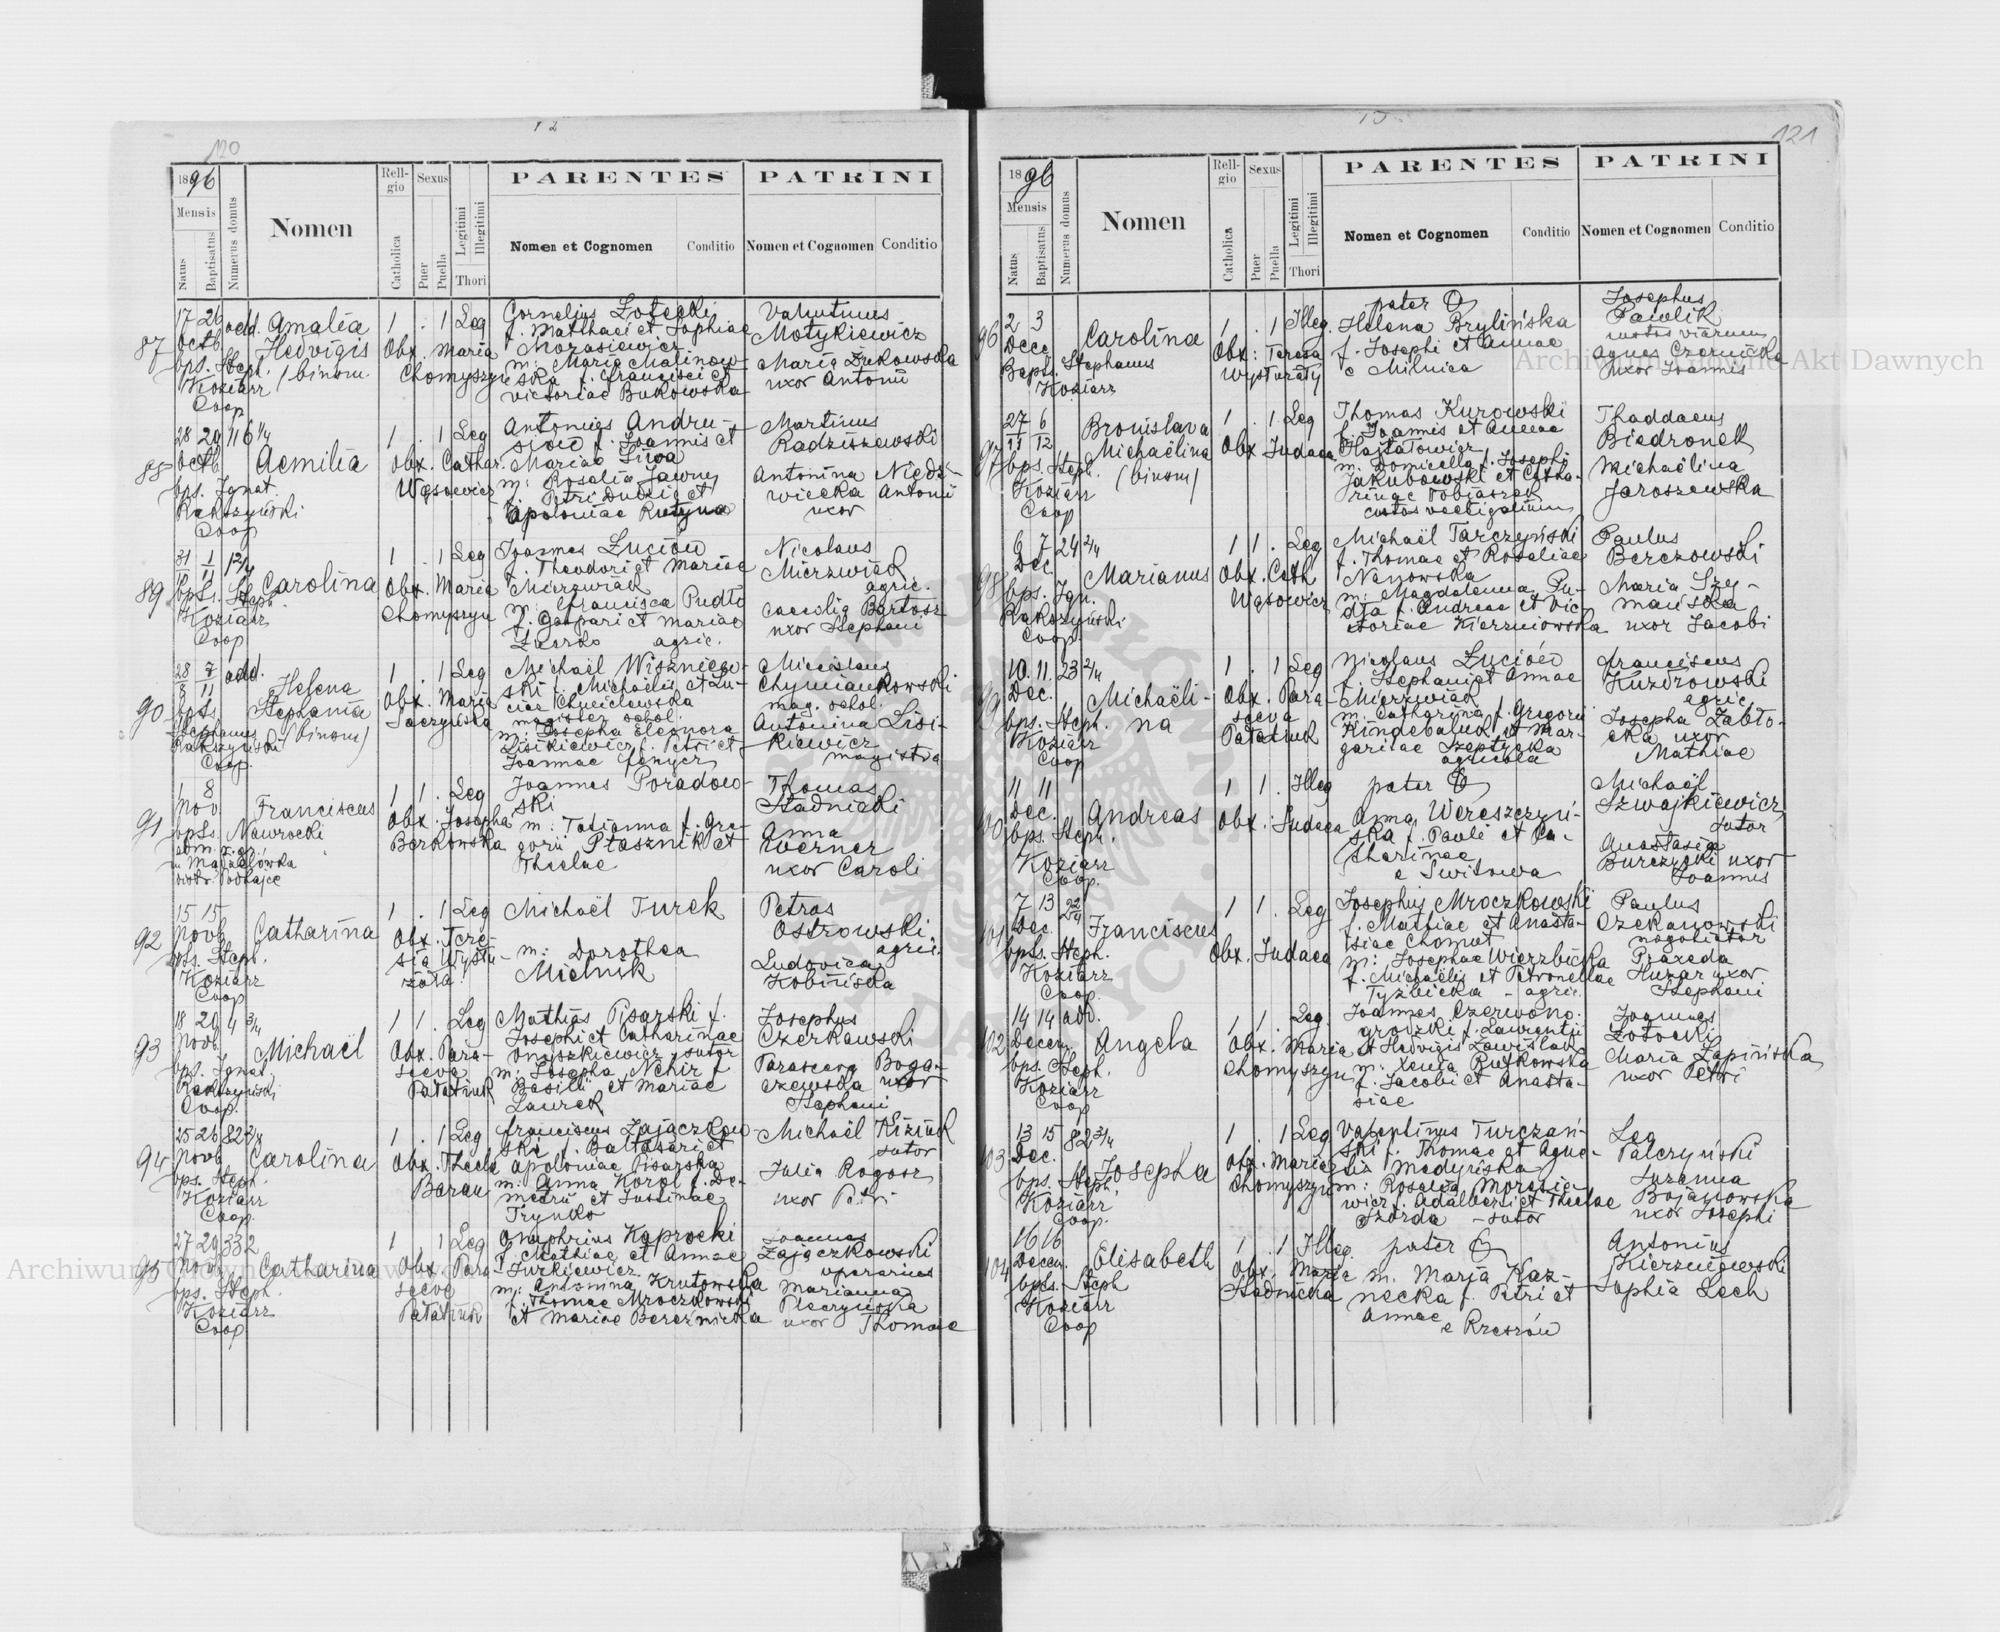 120
1896
Mensis
Natus
Baptisatus
Numerus domus
Nomen
Religio
Catholica
Sexus
Puer
Puella
Legitimi
Illegitimi
Thori
PARENTES
Nomen et Cognomen
Conditio
PATRINI
Nomen et Cognomen
Conditio
87
17 26 add.
Octb
bps. Steph.
Koziarz
Coop
Amalia
Hedvigis
/binom.
1 . 1 Leg
Obx. Maria
Chomyszyn
Cornelius Lotecki
f. Matthaei et Sophiae
Morasiewicz
m: Maria Malinow-
ska f. Francisci et
Victoriae Bukowska
Valentinus
Motykiewicz
Maria Żukowska
uxor Antonii
88
28 29 116 1/4
Octb
bps. Ignat.
Rakszyński
Coop
Aemilia
1 . 1 Leg
Obx. Cathar.
Wąsowicz
Antonius Andru-
siów f. Joannis et
Mariae Liwa
m: Rosalia Jawny
f. Petri Dudzic et
Apoloniae Rutyna
Martinus
Radziszewski
Antonina Niedź-
wiecka Antonii
uxor
89
31 1
10 11
bps. Steph.
Koziarz
Coop
Carolina
1 . 1 Leg
Obx. Maria
Chomyszyn
Joannes Luciów
f. Theodori et Mariae
Mierzwiak
m: Francisca Pudło
f. Gaspari et Mariae
agric.
Nicolaus
Mierzwiak
agric.
Caecilia Bartosz
uxor Stephani
90
28 7 add.
8 11
bps.
Stephanus
Rakszyński
Coop.
Helena
Stephania
/binom/
1 . 1 Leg
Obx. Maria
Saczyńska
Michaël Wiszniew-
ski f. Michaëlis et Lu-
ciae Chmielewska
magister schol.
m: Josepha Eleonora
Lisikiewicz f. Petri et
Joannae Fenycz
Miecislaus
Chymiankowski
mag. schol.
Antonina Lisi-
kiewicz
magistra
91
1 8
Nov
bps. Nawrocki
Franciscus
1 1 . Leg
Obx. Josepha
Berkowska
Joannes Poradow-
ski
m: Tatianna f. Gre-
gorii Ptasznik et
Theclae
Thomas
Stadnicki
Anna
Werner
uxor Caroli
92
15 15
Novb
bps. Steph.
Koziarz
Coop
Catharina
1 . 1 Leg
Obx. Tere-
sia Wystu-
rzata
Michaël Turek
m: Dorothea
Mielnik
Petrus
Ostrowski
agric.
Ludovica
Kobińska
93
18 20 4 3/4
Novb
bps. Ignat
Rakszyński
Coop.
Michaël
1 1 . Leg
Obx. Para-
sceva
Patatiuk
Mathias Pisarski f.
Josephi et Catharinae
Onyszkiewicz sutor
m: Josepha Nehir f.
Basilii et Mariae
Laurek
Josephus
Czerkawski
Parasceva Boga-
czewska uxor
Stephani
94
25 26 82 2/4
Novb
bps. Steph.
Koziarz
Coop.
Carolina
1 . 1 Leg
Obx. Thecla
Baran
Franciscus Zajączkow-
ski f. Baltasari et
Apoloniae Pisarska
m: Anna Korol f. De-
metrii et Justinae
Trynko
Michaël Kiziuk
sutor
Julia Rogosz
uxor Petri
95
27 29 332
Novb
bps. Steph.
Koziarz
Coop
Catharina
1 . 1 Leg
Obx. Para-
sceva
Patatiuk
Onuphrius Kaprocki
f. Mathiae et Annae
Jurkiewicz
m: Antonina Krutowska
f. Thomae Mroczkowski
et Mariae Bereźnicka
Joannes
Zajączkowski
operarius
Marianna
Pleczyńska
uxor Thomae
121
1896
Mensis
Natus
Baptisatus
Numerus domus
Nomen
Religio
Catholica
Sexus
Puer
Puella
Legitimi
Illegitimi
Thori
PARENTES
Nomen et Cognomen
Conditio
PATRINI
Nomen et Cognomen
Conditio
96
2 3
Dece
Bapts. Stephanus
Koziarz
Carolina
1 . 1 Illeg.
Obx: Teresa
Wysturzaty
pater
Helena Brylińska
f. Josephi et Annae
e Milnica
Josephus
Pawlik
custos viarum
Agnes Czernicka
uxor Joannis
97
27 6
11 12
bps. Steph.
Koziarz
Coop
Bronislava
Michaëlina
(binom)
1 . 1 Leg
Obx Judaea
Thomas Kurowski
f. Joannis et Annae
Hajtałowicz
m: Domicella f. Josephi
Jakubowski et Catha-
rinae Tobiaszek
custos vectigalium
Thaddaeus
Biedronek
Michaëlina
Jaroszewska
98
6 7 24 2/4
Dec.
bps. Ign.
Rakszyński
Coop.
Marianus
1 1 . Leg
Obx. Cath
Wąsowicz
Michaël Tarczyński
f. Thomae et Rosaliae
Nanowska
m: Magdalena Pu-
dła f. Andreae et Vic-
toriae Kierzniowska
Paulus
Berezowski
Maria Szy-
mańska
uxor Jacobi
99
10. 11. 23 2/4
Dec.
bps. Steph.
Koziarz
Coop
Michaëli-
na
1 . 1 Leg
Obx. Para-
sceva
Patatiuk
Nicolaus Luciów
f. Stephani et Annae
Mierzwiak
m: Catharina f. Gregorii
Kindebaluk et Mar-
garitae Szeptycka
agricola
Franciscus
Kuzdrowski
agric
Josepha Zabło-
cka uxor
Mathiae
100
11 11
Dec.
bps. Steph.
Koziarz
Coop.
Andreas
1 1 . Illeg
Obx. Judaea
pater
Anna Wereszczyń-
ska f. Pauli et Ca-
tharinae
e Swistowa
Michaël
Szwajkiewicz
sutor
Anastasia
Burczycki uxor
Joannis
101
7 13 22
Dec.
bps. Steph.
Koziarz
Coop.
Franciscus
1 1 . Leg
Obx. Judaea
Josephus Mroczkowski
f. Mathiae et Anasta-
siae Chomut
m: Josepha Wierzbicka
f. Michaëlis et Petronellae
Tyzbicka - agric.
Paulus
Czekanowski
negotiator
Praxeda
Huzar uxor
Stephani
102
14 14 add.
Decem.
bps. Steph.
Koziarz
Coop
Angela
1 1 Leg.
Obx. Maria
Chomyszyn
Joannes Czerwono-
grodzki f. Laurentii
et Hedvigis Zawislak
m: Xenia Rutkowska
f. Jacobi et Anasta-
siae
Joannes
Łotocki
Maria Łapińska
uxor Petri
103
13 15 82 3/4
Dec.
bps. Steph.
Koziarz
Coop.
Josepha
1 . 1 Leg
Obx. Maria
Chomyszyn
Valentinus Turczań-
ski f. Thomae et Agne-
tis Medyńska
m: Rosalia Morasie-
wicz f. Adalberti et Theclae
Szorda - sutor
Leo
Palczyński
Suzanna
Bojanowska
uxor Josephi
104
16 16
Decem.
bps. Steph
Koziarz
Coop
Elisabeth
1 . 1 Illeg.
Obx. Maria
Stadnicka
pater
m. Maria Kaz-
necka f. Petri et
Annae
e Rzeszów
Antonius
Kierzniowski
Sophia Lech
Archiwum Główne Akt Dawnych
Archiwum Główne Akt Dawnych